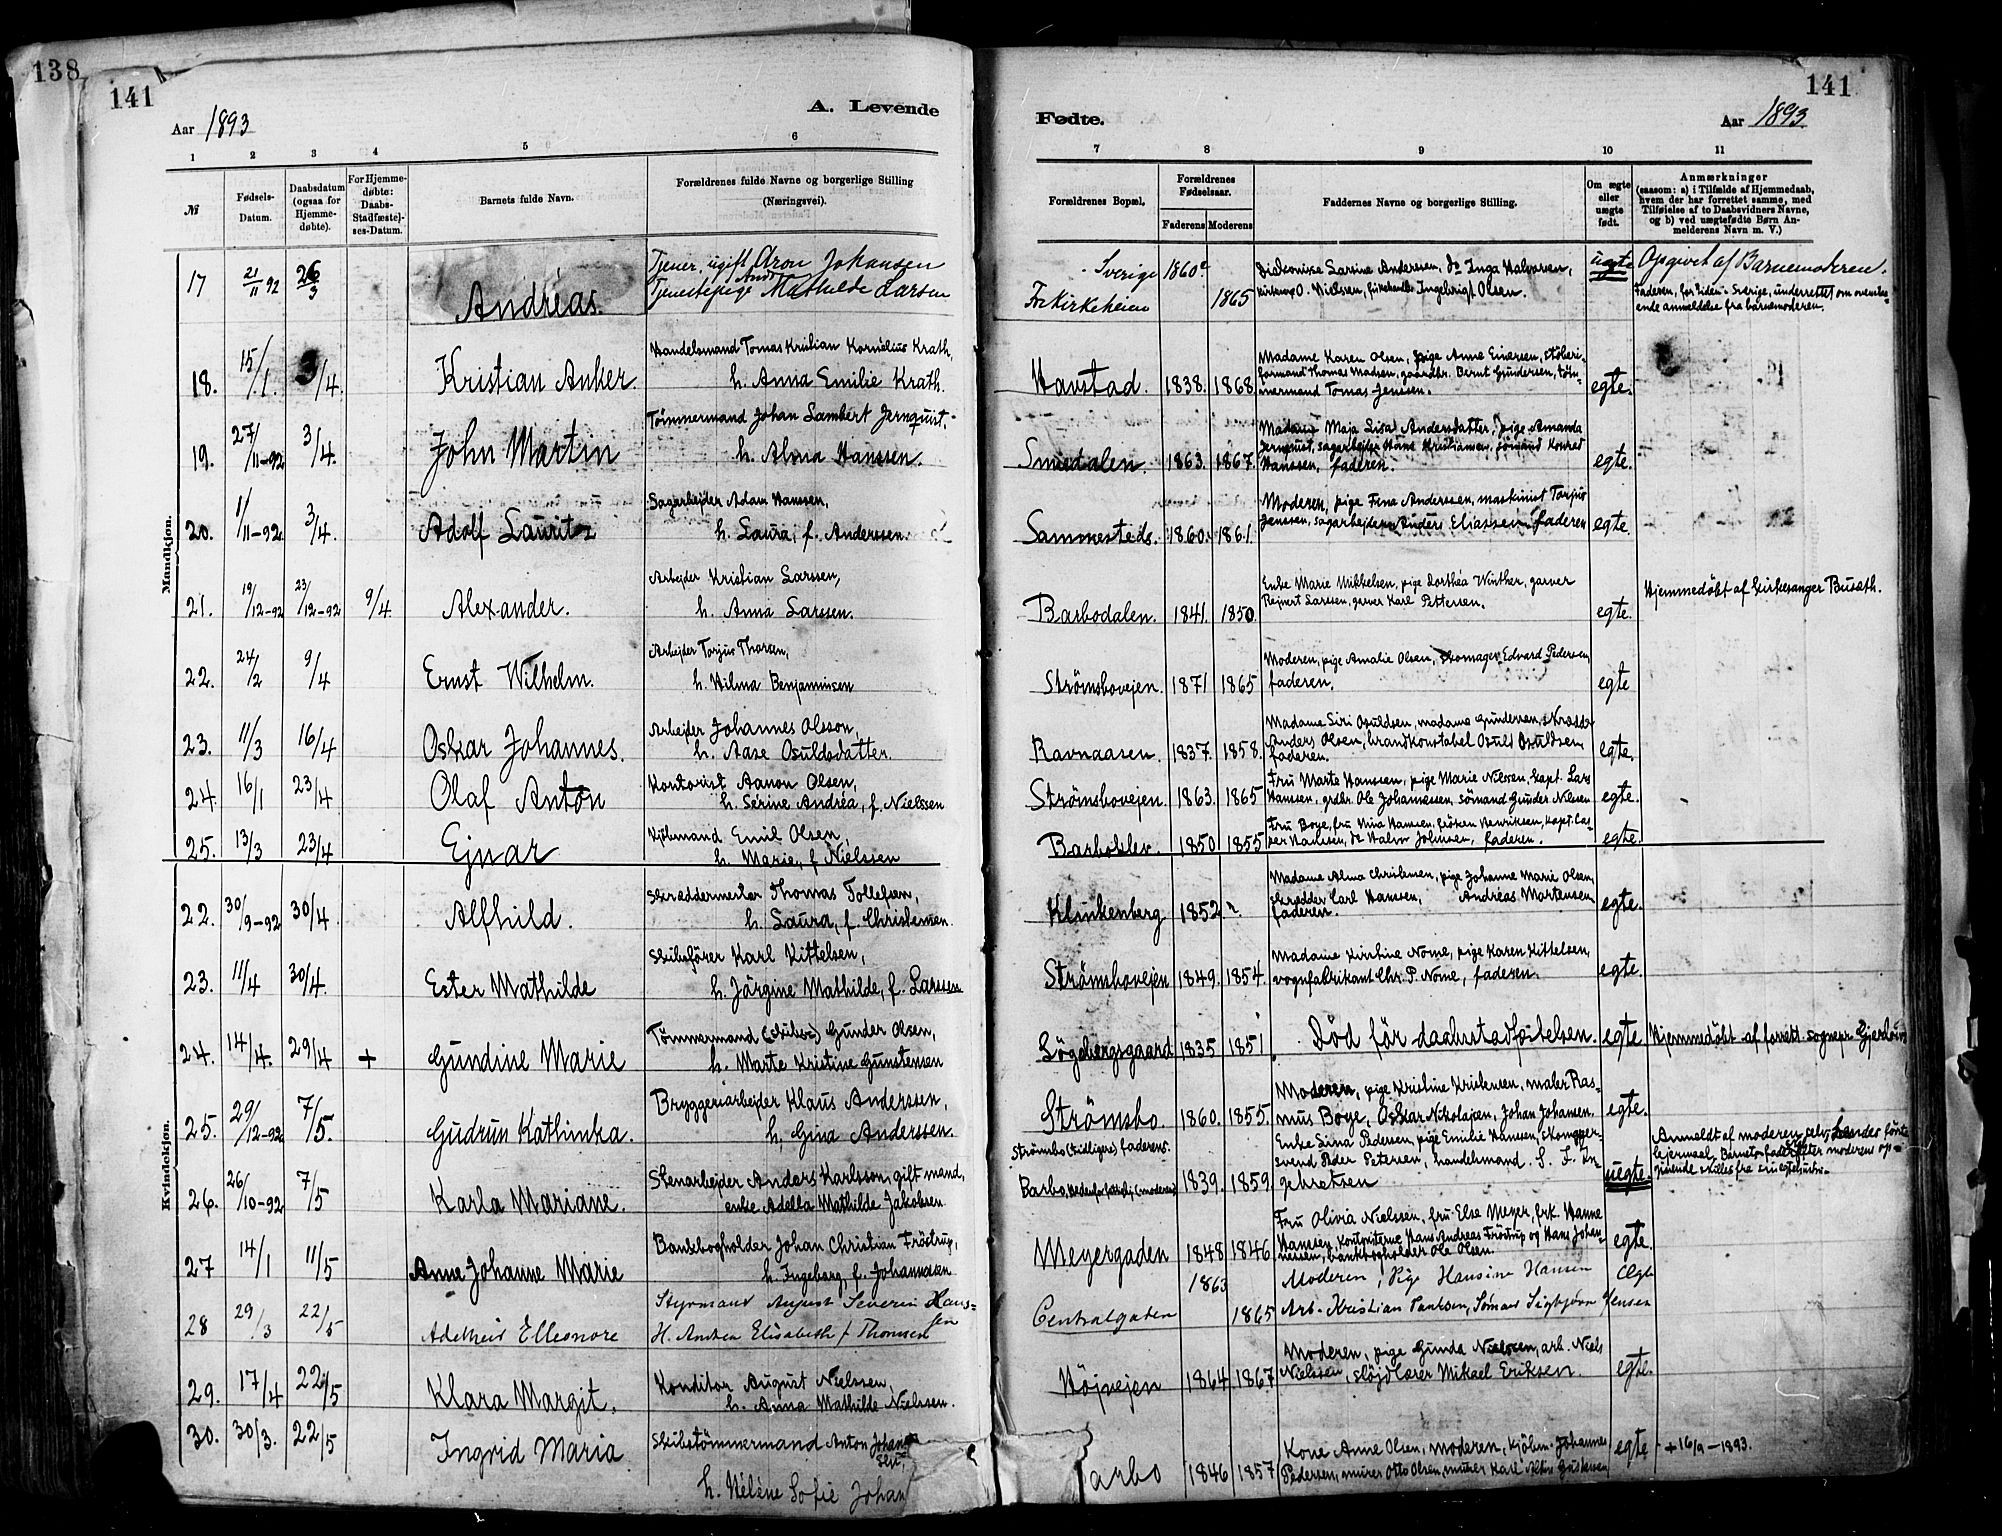 138
141
141
A. Levende
Fødte.
Aar 1893
Aar 1893.
1 2 3 4 5 6
7 8 9 10 11
№
Fødsels-
Datum.
Daabsdatum
(ogsaa for
Hjemme-
døbte).
For Hjemme-
døbte:
Daabs-
Stadfæstel-
ses-Datum.
Barnets fulde Navn.
Forældrenes fulde Navne og borgerlige Stilling
(Næringsvei).
Forældrenes Bopæl.
Forældrenes
Fødselsaar.
Faderens Moderens
Faddernes Navne og borgerlige Stilling.
Om ægte
eller
uægte
født.
Anmærkninger
(saasom: a) i Tilfælde af Hjemmedaab,
hvem der har forrettet samme, med
Tilføielse af to Daabsvidners Navne,
og b) ved uægtefødte Børn An-
melderens Navn m. V.)
Mandkjøn.
17 21/11 92 26/3 Andréas.
Tjener, ugift Aron Johansen
Tjenestepige Mathilde Larsen
Sverige 1860
1865
Diakonisse Larsine Andersen, do Inga Halvorsen,
O. Nielsen, Ingebrigt Olsen.
uegte
Opgivet af Barnemoderen.
Faderen, for Tiden i Sverige, underrettet om ovenstaa-
ende anmeldelse fra barnemoderen.
18. 15/1. 3/4. Kristian Anker.
Handelsmand Tomas Kristian Kornelius Krath,
h. Anna Emilie Krath.
Havstad. 1838. 1868.
Madame Karen Olsen, pige Anne Einersen, støberi-
formand Thomas Madsen, gaardbr. Bernt Gundersen, töm-
mermand Tomas Jenssen.
egte.
19. 27/11-92 3/4. John Martin
Tömmermand Johan Lambert Jernquist.
h. Alma Hanssen.
Smedalen. 1863. 1867.
Madam Maja Lisa Andersdatter, pige Amanda
Jernquist, sagarbejder Hans Kristiansen, sömand Konrad
Hanssen, faderen.
egte.
20. 1/11-92 3/4. Adolf Lauritz
Sagarbejder Adam Hanssen,
h. Laura, f. Anderssen.
Sammesteds. 1860. 1861.
Moderen, pige Fina Anderssen, maskinist Torjus
Jenssen, sagarbejder Anders Eliassen, faderen
egte.
21. 19/12-92 23/12-92 9/4. Alexander.
Arbejder Kristian Larssen,
h. Anna Larssen.
Barbodalen. 1841. 1850.
Enke Marie Mikkelsen, pige Dorthéa Winther, garver
Rejnert Larssen, garver Karl Pettersen.
egte.
Hjemmedöbt af kirkesanger Busæth.
22. 24/2 9/4 Ernst Wilhelm.
Arbejder Torjus Thorsen,
h. Hilma Benjaminsen
Strömsbovejen. 1871 1865
Moderen, pige Amalie Olsen, skomager Edvard Pedersen,
faderen.
egte
23. 11/3 16/4 Oskar Johannes.
Arbejder Johannes Olsson,
h. Aase Osuldsdatter
Ravnaasen. 1837. 1858.
Madame Siri Osuldsen, madame Gundersen, skrædder
Anders Olsen, brandkonstabel Osuld Osuldsen,
faderen.
egte.
24. 16/1 23/4 Olaf Anton
Kontorist Aanon Olsen,
h. Serine Andréa, f. Nielssen
Strömsbovejen. 1863. 1865
Fru Marte Hanssen, pige Marie Nilssen, kapt. Lars
Hanssen, grdbr. Ole Johannessen, sömand Gunder Nilssen
egte.
25. 13/3 23/4 Ejnar
Kjöbmand Emil Olsen,
h. Marie, f Nielssen
Barboklev. 1850 1855
Fru Boye, fru Nina Hanssen, fröken Henriksen, kapt. Cas-
per Hanssen, do Halvor Johnsen, faderen.
egte.
Kvindekjøn.
22. 30/9-92 30/4. Alfhild.
Skræddermester Thomas Tollefsen,
h. Laura, f. Christensen.
Klinkenberg 1852
Madame Alma Christensen, pige Johanne Marie Olsen,
skrædder Carl Hanssen, Andreas Mortensen,
faderen.
egte.
23. 11/4 30/4. Ester Mathilde
Skibsförer Karl Kittelsen,
h. Jörgine Mathilde, f. Larssen
Strömsbovejen 1849. 1854.
Madame Kirstine Nome, pige Karen Kittelsen,
vognfabrikant Chr. P. Nome, faderen.
egte.
24. 14/4. 29/4 + Gundine Marie
Tömmermand (skibs) Gunder Olsen,
h. Marte Kristine Gunstensen
Lögebergsgaard 1835 1851
Död för daabsstadfæstelsen.
egte
Hjemmedöbt af forrett. sognepr.
25. 29/12-92 7/5. Gudrun Kathinka.
Bryggeriarbejder Klaus Anderssen,
h. Gina Anderssen.
Strömsbo. 1860. 1855.
Moderen, pige Kristine Kristensen, maler Ras-
mus Boye, Oskar Nikolajsen, Johan Johansen.
egte.
26. 26/10-92 7/5 Karla Mariane.
Stenarbejder Anders Karlsson, gift mand,
enke Adella Mathilde Jakobsen
Strömsbo (tidligere) faderens.
Barbo, (moderens) 1839. 1859.
Enke Lina Pedersen, pige Emilie Hanssen, skomager-
svend Peder Petersen, handelsmand S. F. In-
gebretsen
uegte.
Anmeldt af moderen selv,
27 14/1 11/5 Anne Johanne Marie
Bankbogholder Johan Christian Fröstrup,
h. Ingeborg, f. Johannesen
Meyergaden 1848 1846
Fru Olivia Nielssen, fru Else Meyer, frk. Hanne
Hanssen, kontoristerne Hans Andreas Fröstrup og Hans Johan-
nessen, bankbogholder Ole Olsen.
egte.
28 29/3 22/5 Adelheid Elleonore
Styrmand August Severin Hans-
sen
H. Andrea Elisabeth f Thomsen
Centralgaden 1863 1865
Moderen, Pige Hansine Hansen
Arb. Kristian Paulsen, Sömand Sigbjörn Jensen
Ægte
29. 17/4 22/5 Klara Margit.
Konditor August Nielssen,
h. Anna Mathilde Nielssen.
Höjvejen 1864 1867
Moderen, pige Gunda Nielssen, arb. Niels
Nielssen, slöjdlærer Mikael Eriksen.
egte.
30. 30/3. 22/5 Ingrid Maria
Skibstömmermand Anton Johan
sen,
h. Heléne Sofie Johan
arbo 1846 1857
Kone Anne Olsen, moderen, kjöbm. Johannes
Pedersen, murer Otto Olsen, murer Karl
egte
+ 16/9-1893.